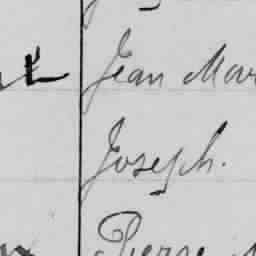 Jean Mar
Joseph.
Pierre